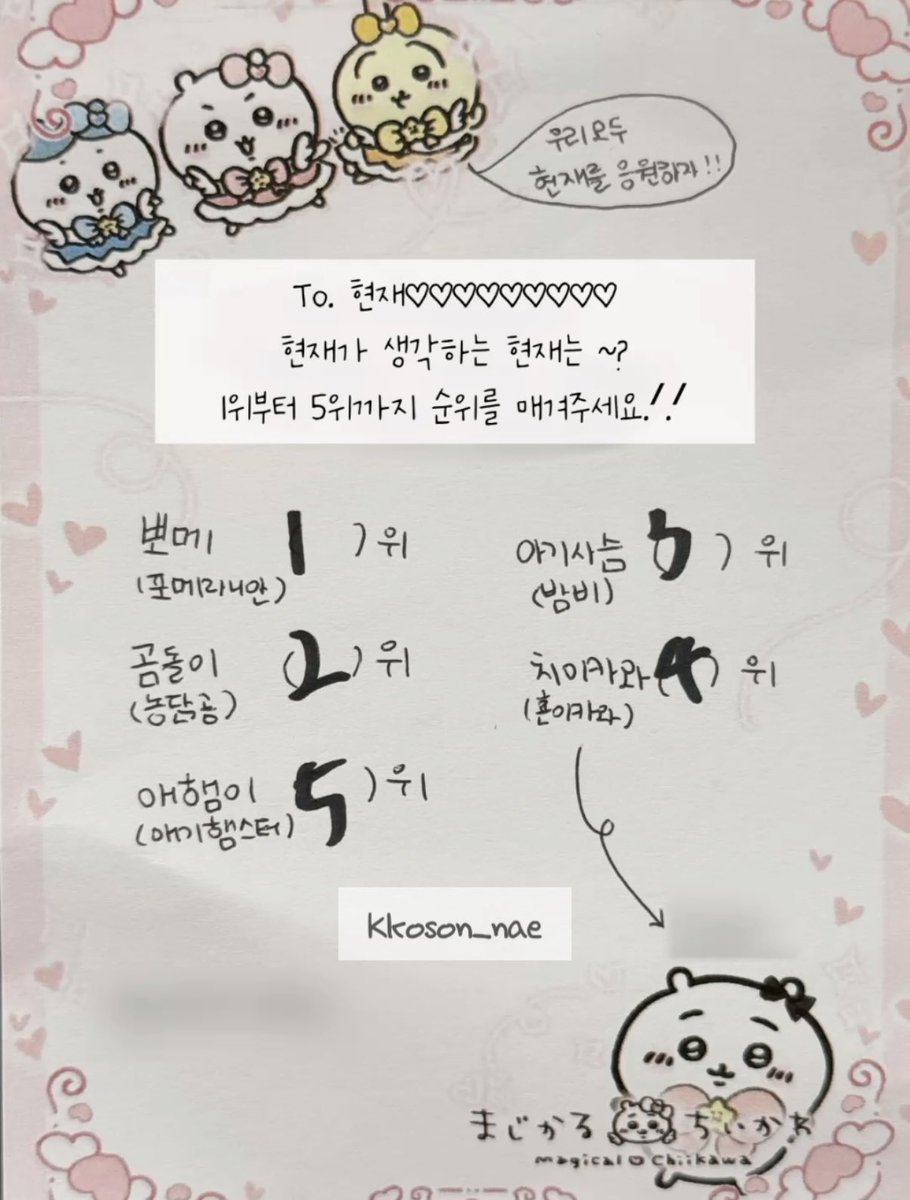 우리모두
현재를 응원하자!!
To. 현재♡♡♡♡♡♡♡♡♡♡
현재가 생각하는 현재는 ~?
1위부터 5위까지 순위를 매겨주세요!!
뽀메 1 )위
(포메라니안)
곰돌이 (2)위
(농담곰)
애햄이 5 )위
(애기햄스터)
아기사슴 3 ) 위
(밤비)
치이카와(4) 위
(횬이카와)
Kkoson_nae
まじかるちいかわ
magical♡Chiikawa